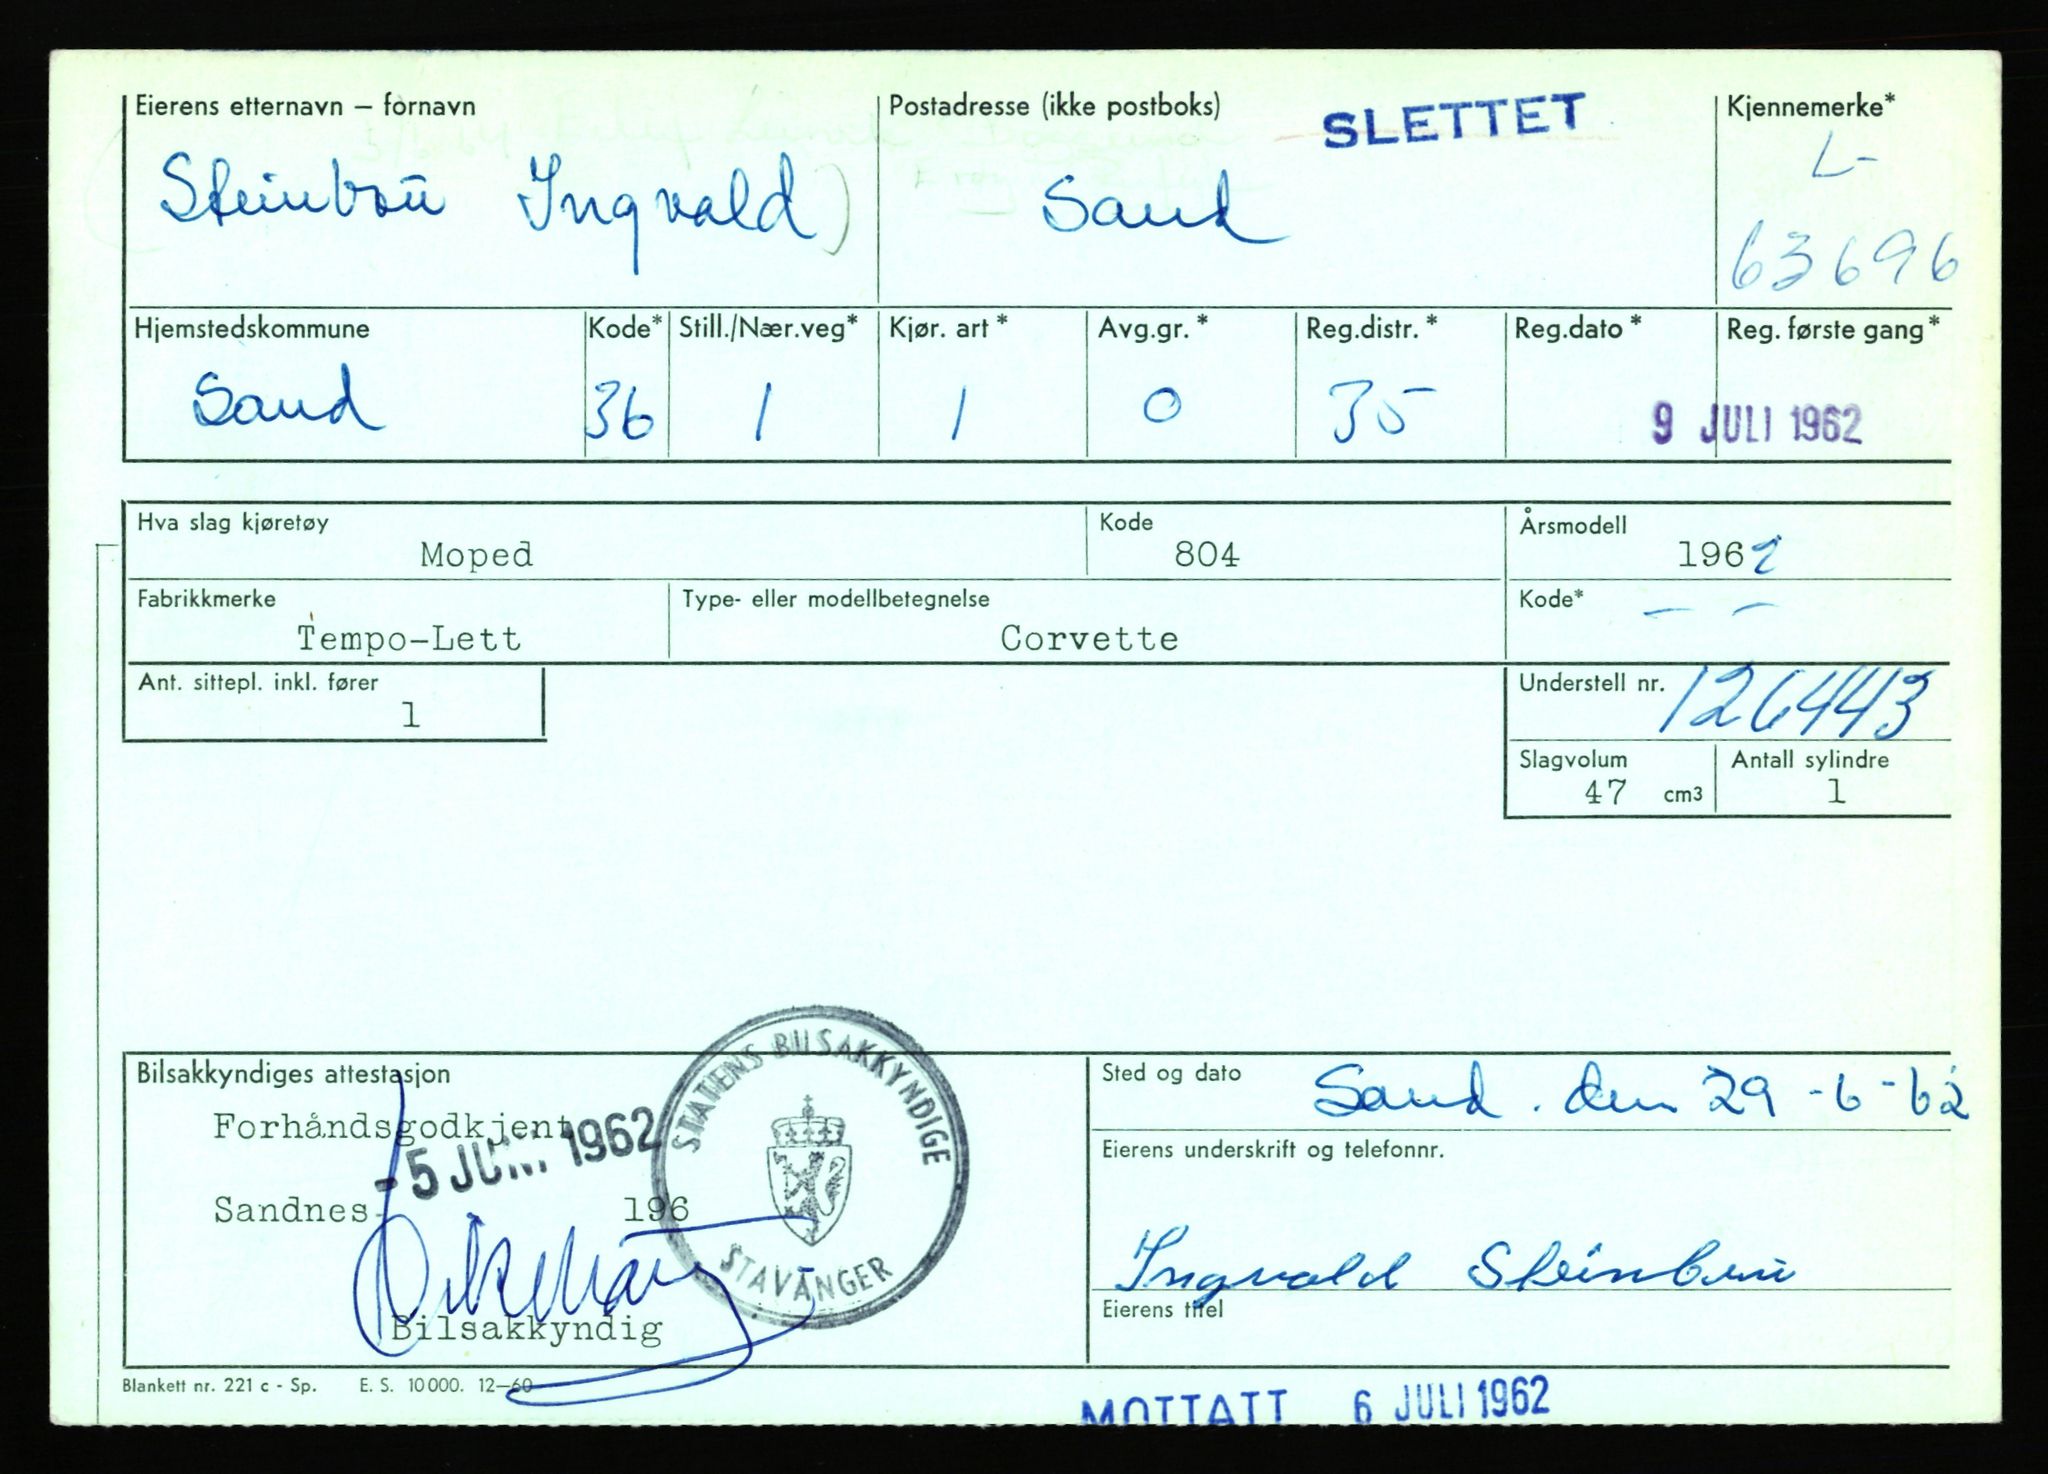 Eierens etternavn – fornavn
Postadresse (ikke postboks)
SLETTET
Kjennemerke*
Steinbru Ingvald)
Sand
L-
63696
Hjemstedskommune Kode* Still./Nær.veg* Kjør. art* Avg.gr.* Reg.distr.* Reg.dato* Reg. første gang*
Sand 36 1 1 0 35 9 JULI 1962
Hva slag kjøretøy Kode Årsmodell
Moped 804 1962
Fabrikkmerke Type- eller modellbetegnelse Kode* – –
Tempo-Lett Corvette
Ant. sittepl. inkl. fører Understell nr. 126443
1
Slagvolum Antall sylindre
47 cm3 1
Bilsakkyndiges attestasjon
Forhåndsgodkjent
-5 JUNI 1962
Sandnes 196
Bilsakkyndig
STATENS BILSAKKYNDIGE
STAVANGER
Sted og dato Sand. den 29-6-62
Eierens underskrift og telefonnr.
Ingvald Steinbru
Eierens titel
Blankett nr. 221 c - Sp. E. S. 10000. 12–60
MOTTATT 6 JULI 1962